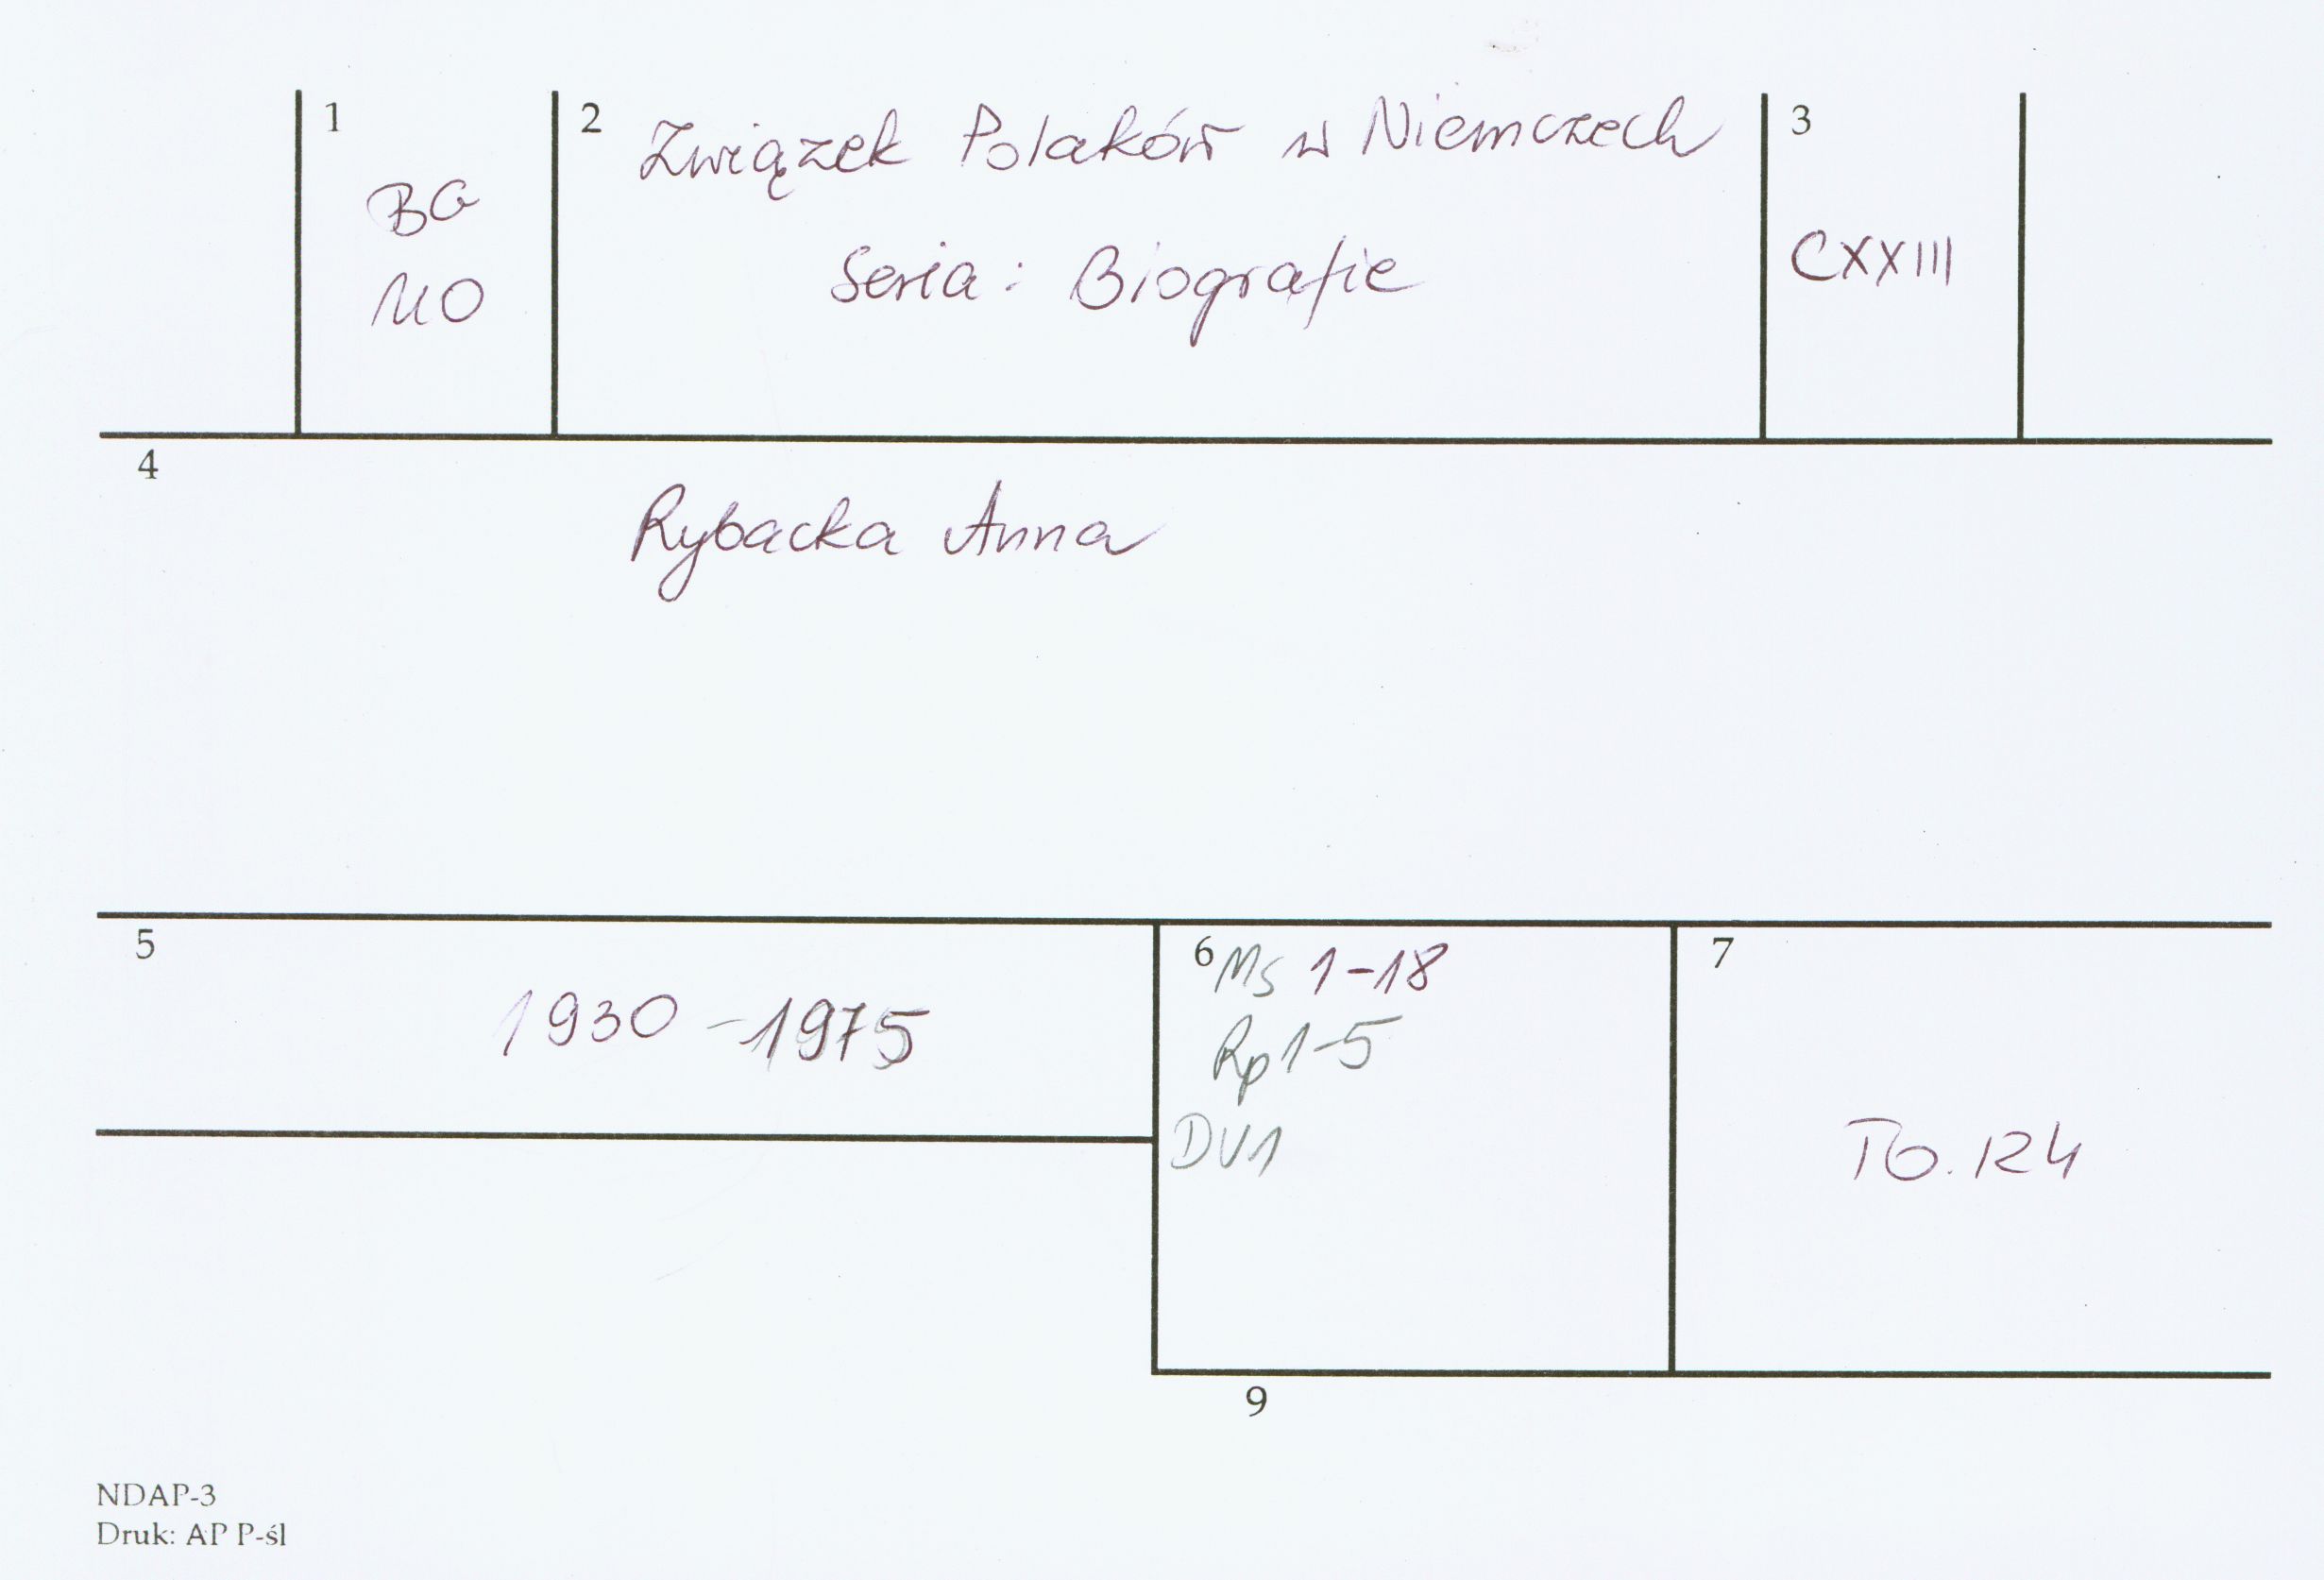 1
BG
UO
2
Związek Polaków w Niemczech
Seria: Biografie
3
CXXIII
4
Rybacka Anna
5
1930-1975
6
Ms 1-18
Rp 1-5
DV1
7
TO.124
9
NDAP-3
Druk: AP P-śl